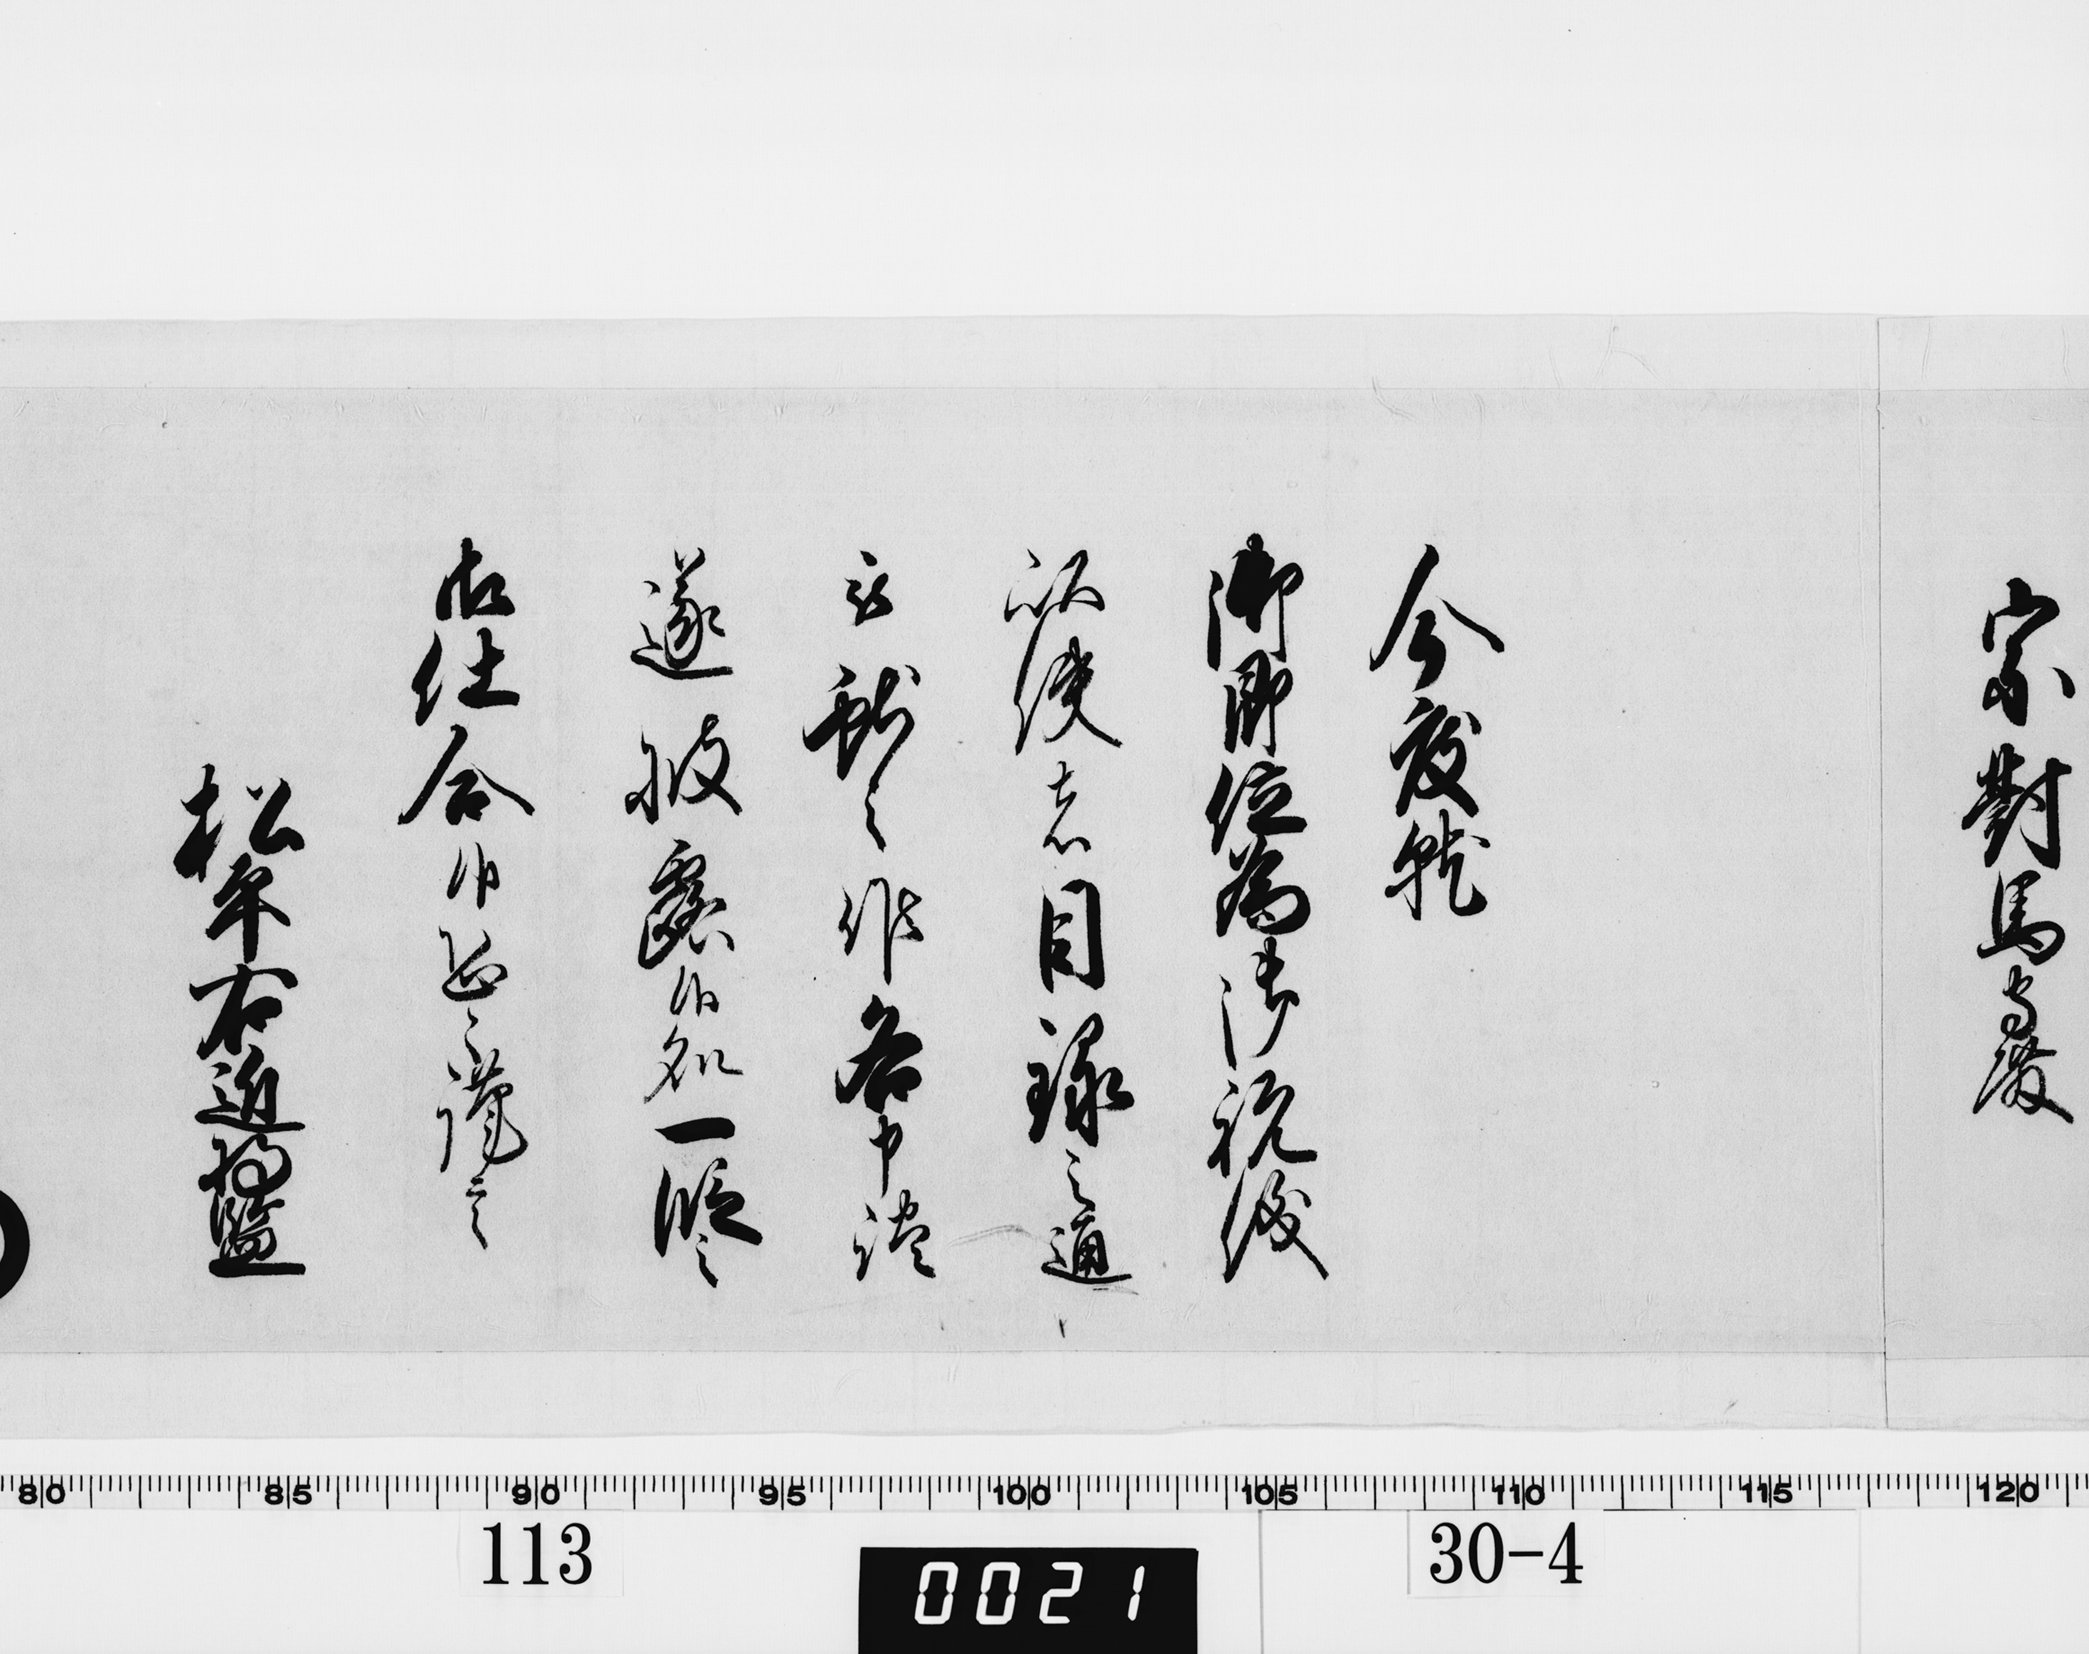 宗對馬守殿
今度就
御即位為御祝儀
以使者目録之通
被獻之作各申談
遂披露候処一段之
御仕合候恐々謹言
松平右近将監
80 85 90 95 100 105 110 115 120
113
0021
30-4